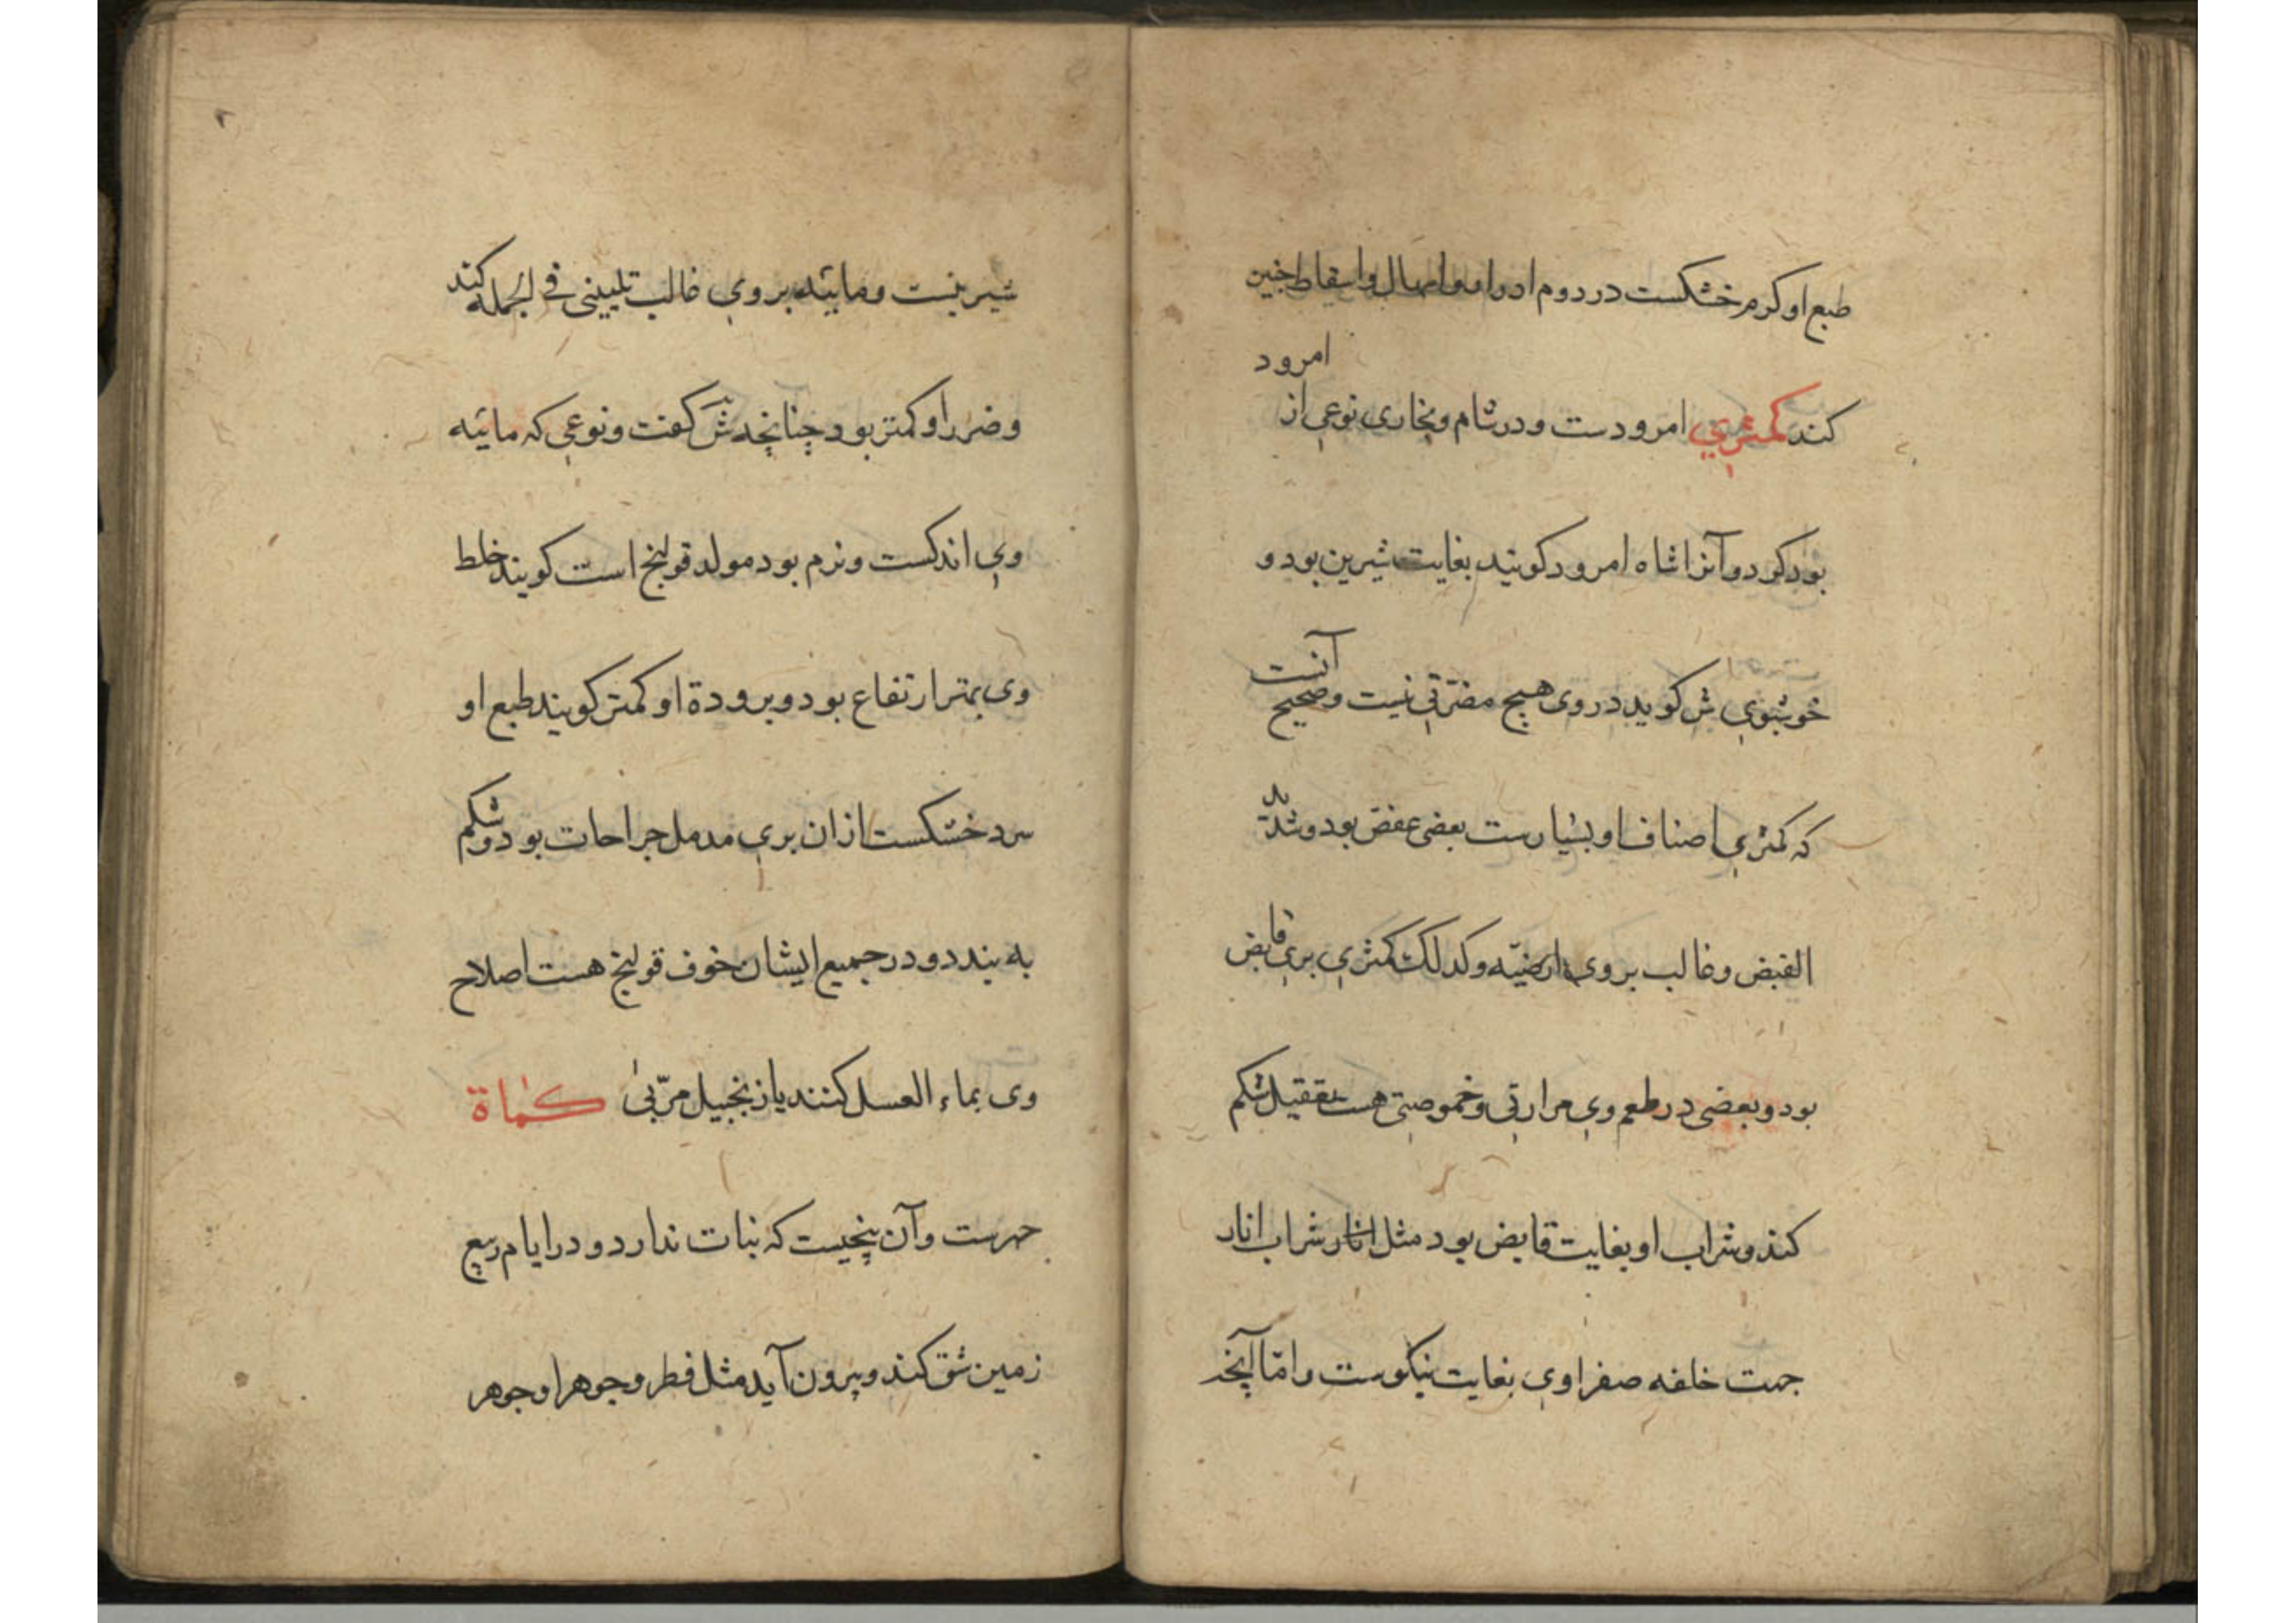 طبع او کرم خشکست در دوم ادرار و اسهال و اسقاط جنین
امرود
کند کمثری امرودست و در شام و بخاری نوعی از
بود کرد و آنرا شاه امرود کویند بغایت شیرین بود و
خوشبوی ش کوید در وی هیچ مضرتی نیست و صحیح آنست
که کمثری اصناف او بسیارست بعضی عفص بود و شدید
القبض و غالب بر وی ارضیّه و کدلک کمثری بری قابض
بود و بعضی در طعم وی مرارتی و خموصتی هست تعقیل شکم
کند و شراب او بغایت قابض بود مثل انار شراب انار
جهت خلفه صفراوی بغایت نیکوست و امّا آنچه
شیرینست و مائیه بر وی غالب تلیینی فی الجمله کند
و ضرر او کمتر بود چنانچه ش کفت و نوعی که مائیه
وی اندکست و نرم بود مولد قولنج است کویند خلط
وی بهتر ارتفاع بود و برودة او کمتر کویند طبع او
سرد خشکست ازان بری مدمل جراحات بود و شکم
به بندد و در جمیع ایشان خوف قولنج هست اصلاح
وی بماء العسل کنند یا زنجبیل مرّبی کماة
و آن بیخیست که نبات ندارد و در ایام ربیع
زمین شق کند و بیرون آید مثل فطر و جوهر او جوهر